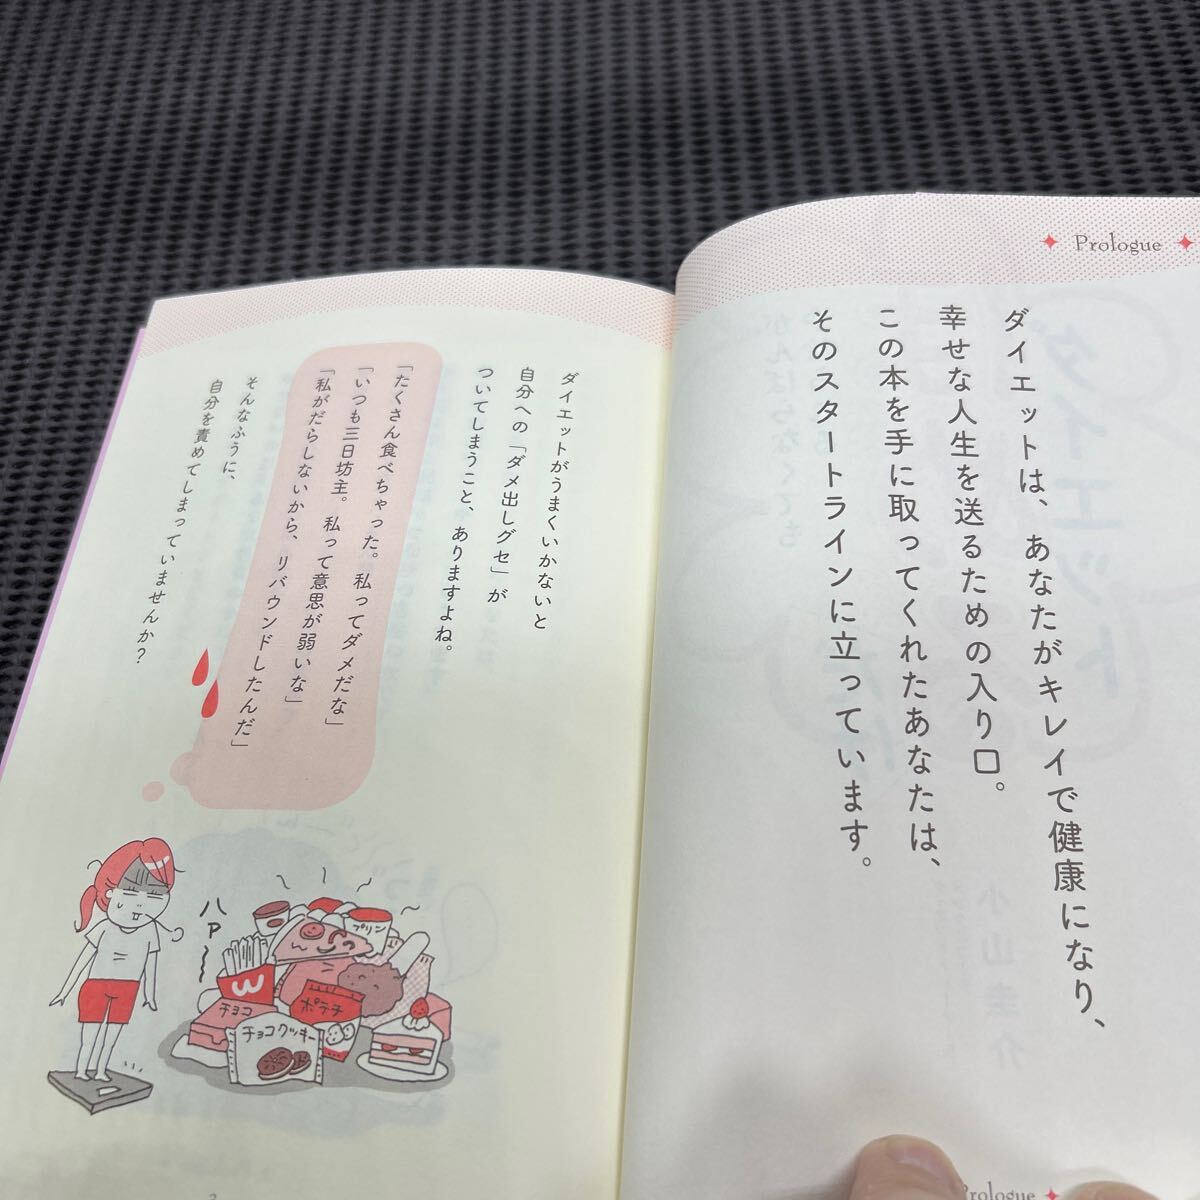 Prologue
ダイエットは、あなたがキレイで健康になり、
幸せな人生を送るための入り口。
この本を手に取ってくれたあなたは、
そのスタートラインに立っています。
Prologue
ダイエットがうまくいかないと
自分への「ダメ出しグセ」が
ついてしまうこと、ありますよね。
「たくさん食べちゃった。私ってダメだな」
「いつも三日坊主。私って意思が弱いな」
「私がだらしないから、リバウンドしたんだ」
そんなふうに、
自分を責めてしまっていませんか?
ハァ〜
プリン
チョコ
ポテチ
チョコクッキー
小山圭介